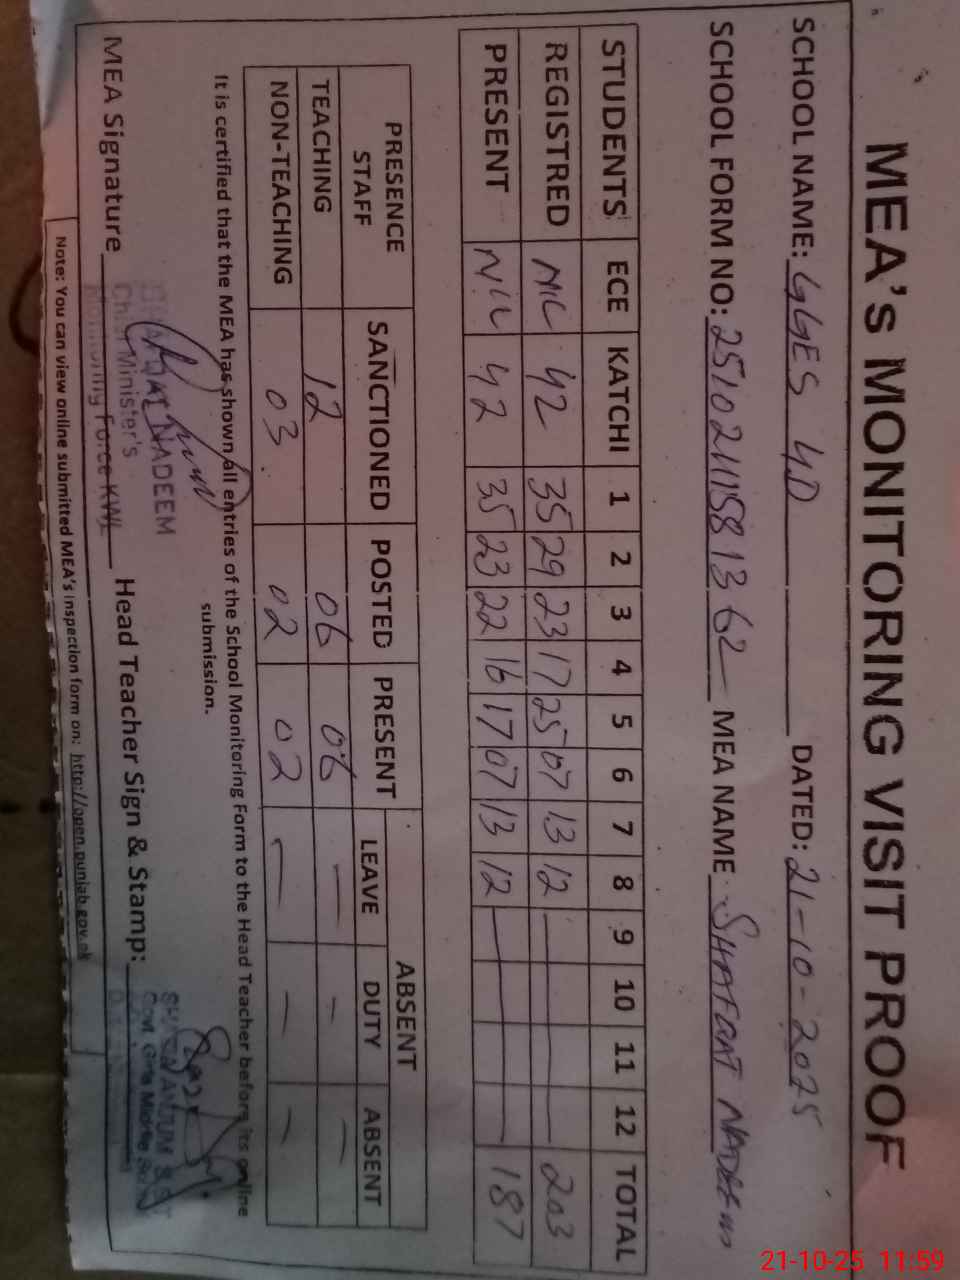 MEA's MONITORING VISIT PROOF
SCHOOL NAME: GGES 4D DATED: 21-10-2025
SCHOOL FORM NO: MEA NAME SHAFQAT NADEEM
STUDENTS ECE KATCHI 1 2 3 4 5 6 7 8 9 10 11 12 TOTAL
REGISTRED NIL 42 35 29 23 17 25 07 13 12 203
PRESENT NIL 42 35 23 22 16 17 07 13 12 187
PRESENCE STAFF SANCTIONED POSTED PRESENT ABSENT
LEAVE DUTY ABSENT
TEACHING 12 06 06 — — —
NON-TEACHING 03 02 02 — — —
It is certified that the MEA has shown all entries of the School Monitoring Form to the Head Teacher before its online
submission.
MEA Signature Head Teacher Sign & Stamp:
NADEEM
Chief Minister's
Monitoring Force KWL
Note: You can view online submitted MEA's inspection form on: http://open.punjab.gov.pk
21-10-25 11:59